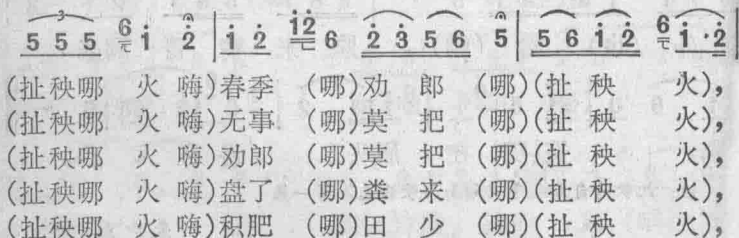 5 5 5 6 i 2 | i 2 i2 6 2 3 5 6 5 | 5 6 i 2 6 i · 2 |
(扯秧哪 火 嗨)春季 (哪)劝 郎 (哪)(扯 秧 火),
(扯秧哪 火 嗨)无事 (哪)莫 把 (哪)(扯 秧 火),
(扯秧哪 火 嗨)劝郎 (哪)莫 把 (哪)(扯 秧 火),
(扯秧哪 火 嗨)盘了 (哪)粪 来 (哪)(扯 秧 火),
(扯秧哪 火 嗨)积肥 (哪)田 少 (哪)(扯 秧 火),